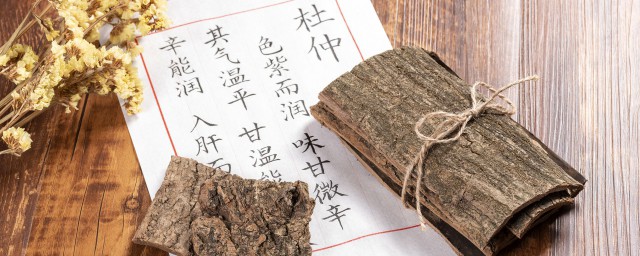 杜仲
色紫而润 味甘微辛
其气温平 甘温能
辛能润 入肝而